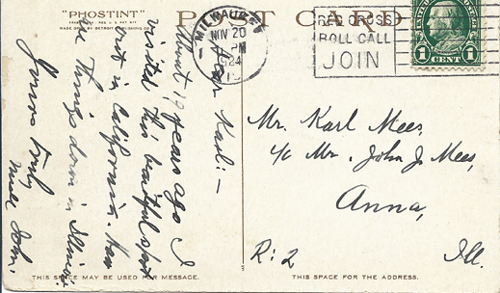 "PHOSTINT"
POST CARD
MADE ONLY BY DETROIT PUBLISHING CO.
MILWAUKEE
NOV 20
PM
1924
WIS
RED CROSS
ROLL CALL
JOIN
1 CENT 1
Dear Karl:—
About 19 years ago I
visited this beautiful spot
out in California. How
are things down in Illinois.
Yours truly
John.
Mr. Karl Mees,
c/o Mr. John J Mees,
Anna,
R: 2 Ill.
THIS SPACE MAY BE USED FOR MESSAGE.
THIS SPACE FOR THE ADDRESS.